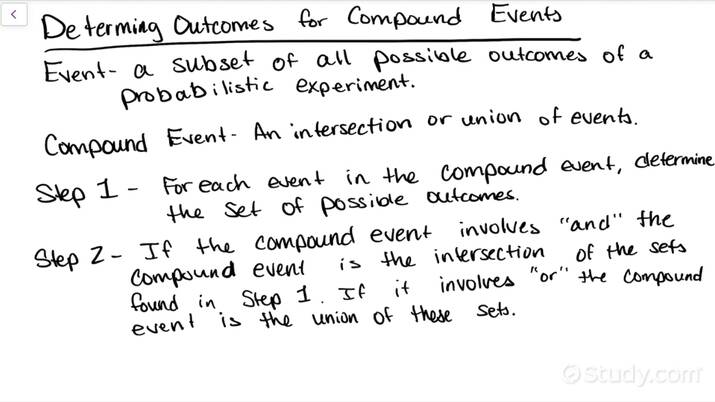 Determing Outcomes for Compound Events
Event- a subset of all possible outcomes of a
probabilistic experiment.
Compound Event- An intersection or union of events.
Step 1 - For each event in the compound event, determine
the set of possible outcomes.
Step 2 - If the compound event involves "and" the
compound event is the intersection of the sets
found in Step 1. If it involves "or" the compound
event is the union of these sets.
Study.com